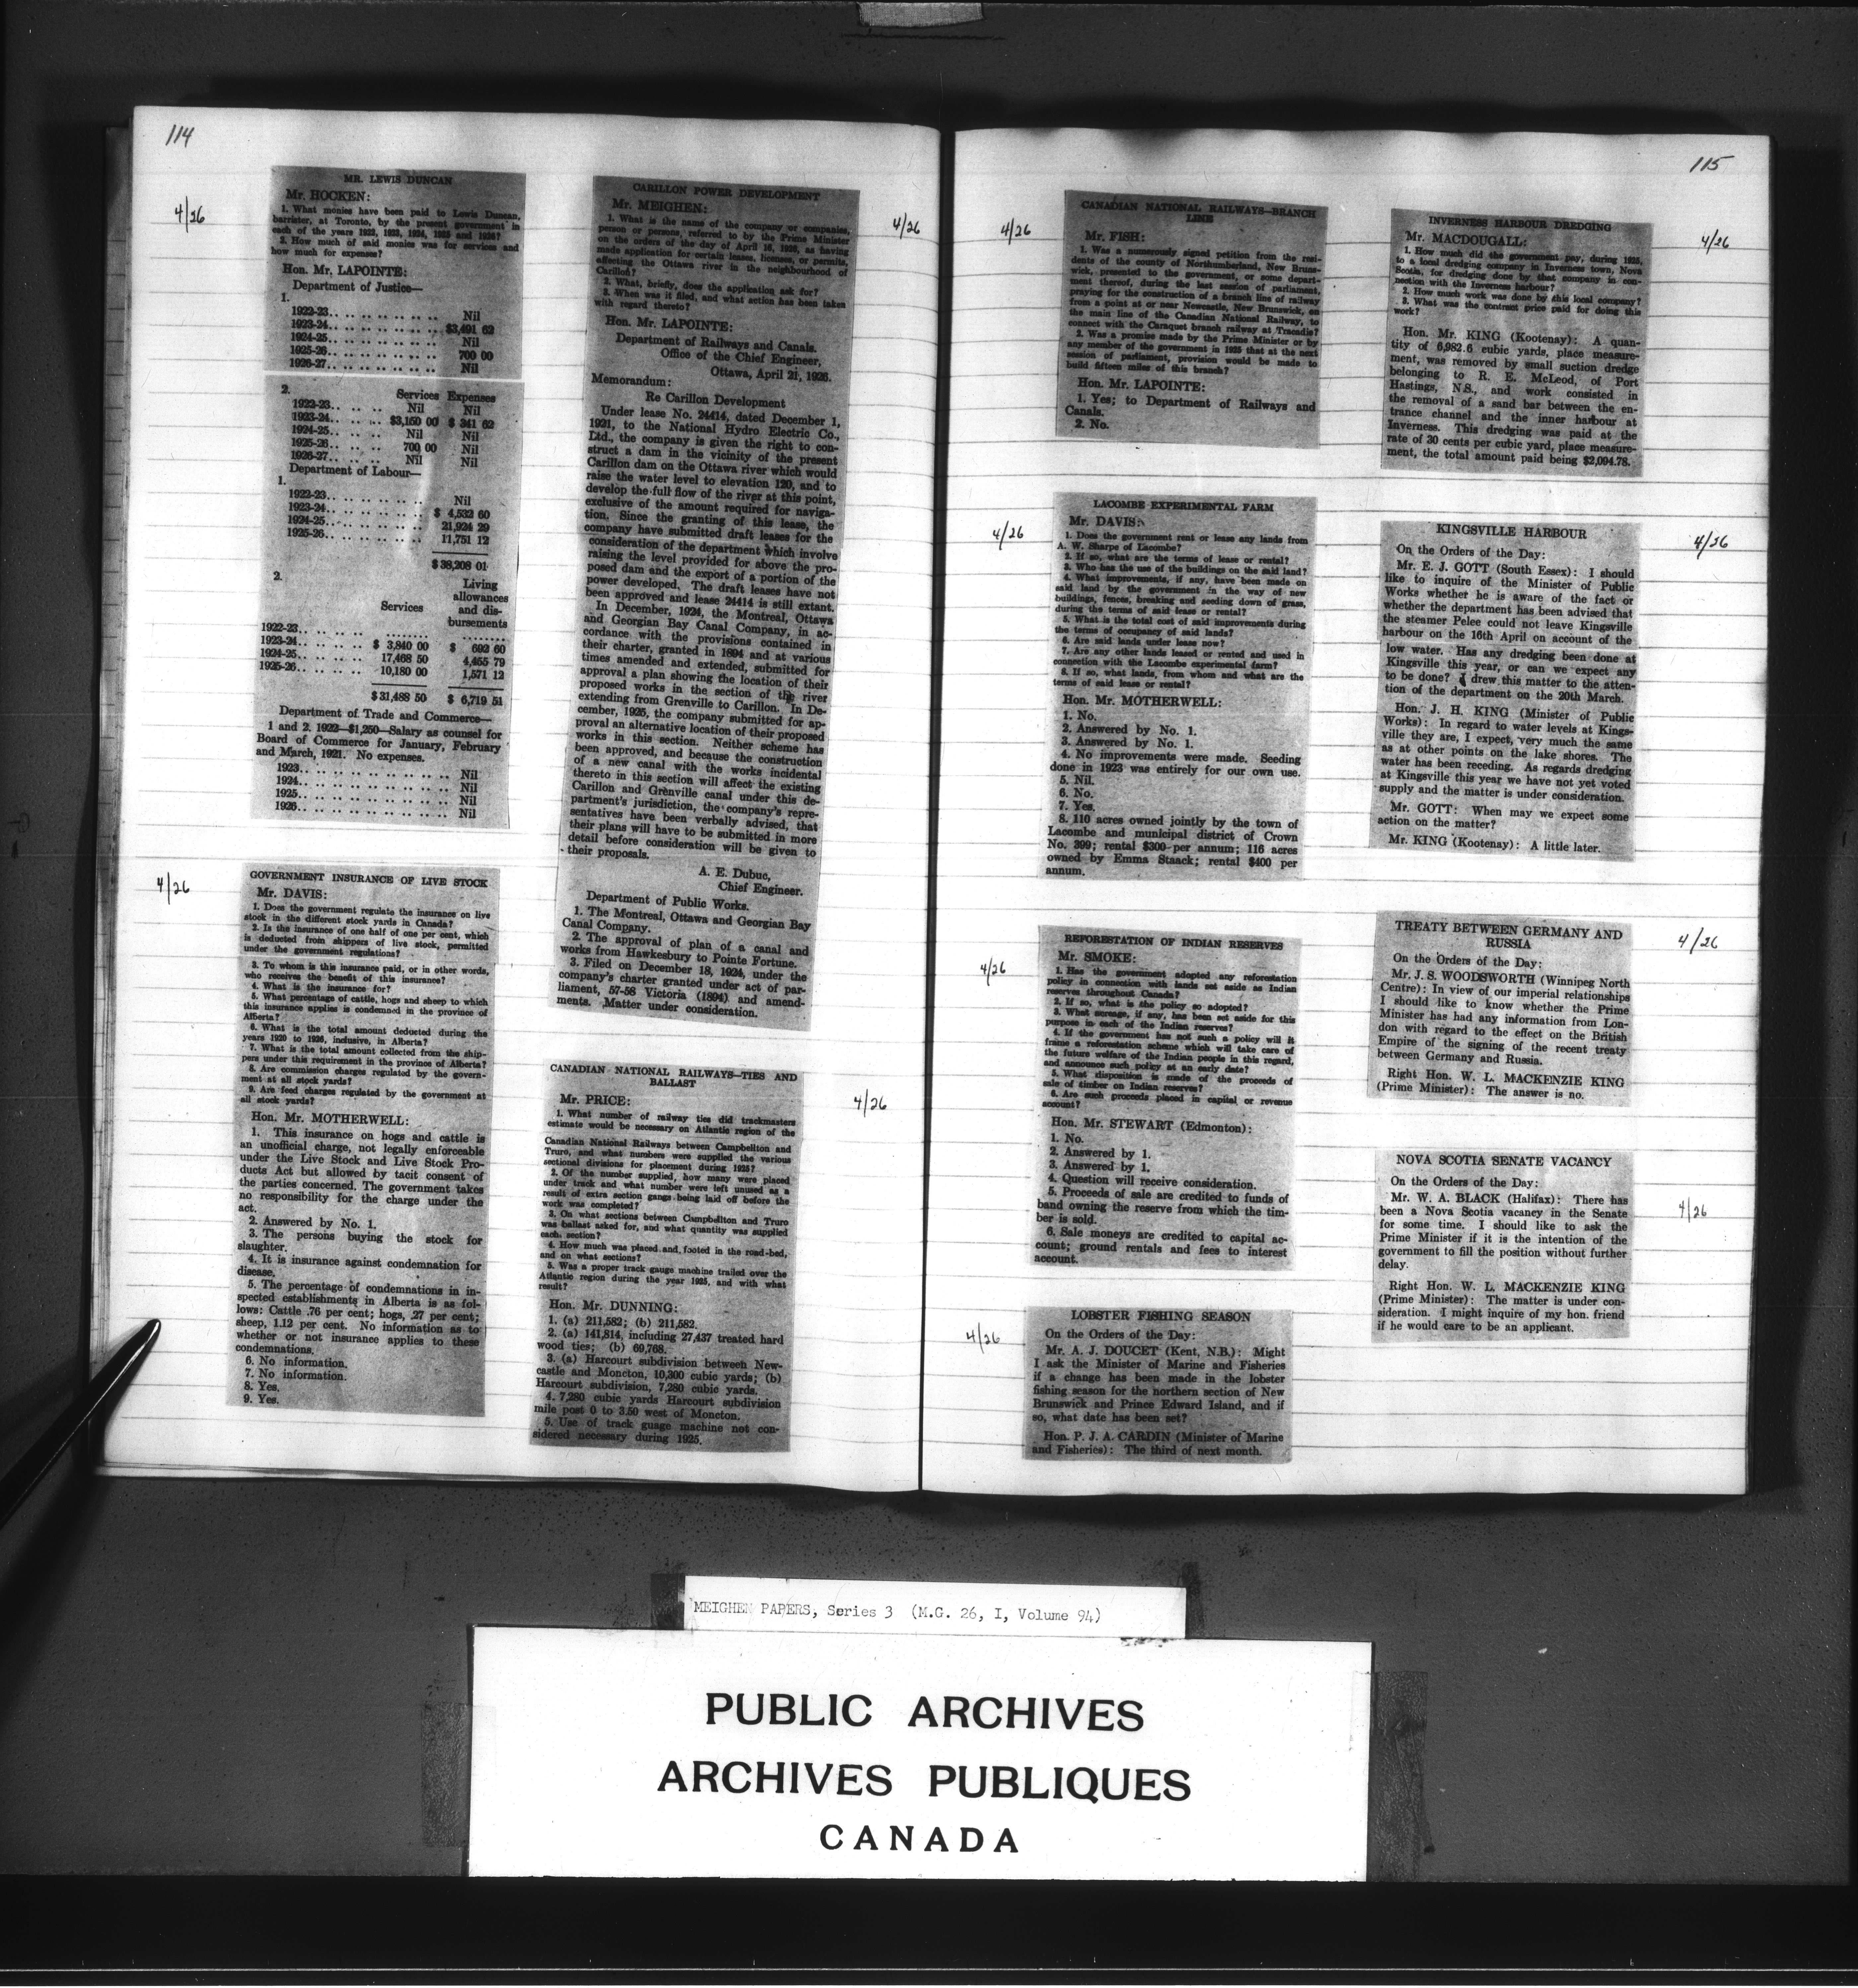 114
4/26
MR. LEWIS DUNCAN
Mr. HOCKEN:
1. What monies have been paid to Lewis Duncan,
barrister, at Toronto, by the present government in
each of the years 1922, 1923, 1924, 1925 and 1926?
2. How much of said monies was for services and
how much for expenses?
Hon. Mr. LAPOINTE:
Department of Justice—
1.
1922-23.. .. .. .. .. .. .. .. Nil
1923-24.. .. .. .. .. .. .. .. $3,491 62
1924-25.. .. .. .. .. .. .. .. Nil
1925-26.. .. .. .. .. .. .. .. 700 00
1926-27.. .. .. .. .. .. .. .. Nil
2. Services Expenses
1922-23.. .. .. .. Nil Nil
1923-24.. .. .. .. $3,150 00 $ 341 62
1924-25.. .. .. .. Nil Nil
1925-26.. .. .. .. 700 00 Nil
1926-27.. .. .. .. Nil Nil
Department of Labour—
1.
1922-23.. .. .. .. .. .. .. Nil
1923-24.. .. .. .. .. .. .. $ 4,532 60
1924-25.. .. .. .. .. .. .. 21,924 29
1925-26.. .. .. .. .. .. .. 11,751 12
$38,208 01
2.
Living
allowances
Services and dis-
bursements
1922-23.. .. .. .. .. ........ ........
1923-24.. .. .. .. .. $ 3,840 00 $ 692 60
1924-25.. .. .. .. .. 17,468 50 4,455 79
1925-26.. .. .. .. .. 10,180 00 1,571 12
$31,488 50 $ 6,719 51
Department of Trade and Commerce—
1 and 2. 1922—$1,250—Salary as counsel for
Board of Commerce for January, February
and March, 1921. No expenses.
1923.. .. .. .. .. .. .. .. .. Nil
1924.. .. .. .. .. .. .. .. .. Nil
1925.. .. .. .. .. .. .. .. .. Nil
1926.. .. .. .. .. .. .. .. .. Nil
4/26
GOVERNMENT INSURANCE OF LIVE STOCK
Mr. DAVIS:
1. Does the government regulate the insurance on live
stock in the different stock yards in Canada?
2. Is the insurance of one half of one per cent, which
is deducted from shippers of live stock, permitted
under the government regulations?
3. To whom is this insurance paid, or in other words,
who receives the benefit of this insurance?
4. What is the insurance for?
5. What percentage of cattle, hogs and sheep to which
this insurance applies is condemned in the province of
Alberta?
6. What is the total amount deducted during the
years 1920 to 1926, inclusive, in Alberta?
7. What is the total amount collected from the ship-
pers under this requirement in the province of Alberta?
8. Are commission charges regulated by the govern-
ment at all stock yards?
9. Are feed charges regulated by the government at
all stock yards?
Hon. Mr. MOTHERWELL:
1. This insurance on hogs and cattle is
an unofficial charge, not legally enforceable
under the Live Stock and Live Stock Pro-
ducts Act but allowed by tacit consent of
the parties concerned. The government takes
no responsibility for the charge under the
act.
2. Answered by No. 1.
3. The persons buying the stock for
slaughter.
4. It is insurance against condemnation for
disease.
5. The percentage of condemnations in in-
spected establishments in Alberta is as fol-
lows: Cattle .76 per cent; hogs, .27 per cent;
sheep, 1.12 per cent. No information as to
whether or not insurance applies to these
condemnations.
6. No information.
7. No information.
8. Yes.
9. Yes.
4/26
CARILLON POWER DEVELOPMENT
Mr. MEIGHEN:
1. What is the name of the company or companies,
person or persons, referred to by the Prime Minister
on the orders of the day of April 16, 1926, as having
made application for certain leases, licenses, or permits,
affecting the Ottawa river in the neighbourhood of
Carillon?
2. What, briefly, does the application ask for?
3. When was it filed, and what action has been taken
with regard thereto?
Hon. Mr. LAPOINTE:
Department of Railways and Canals.
Office of the Chief Engineer,
Ottawa, April 21, 1926.
Memorandum:
Re Carillon Development
Under lease No. 24414, dated December 1,
1921, to the National Hydro Electric Co.,
Ltd., the company is given the right to con-
struct a dam in the vicinity of the present
Carillon dam on the Ottawa river which would
raise the water level to elevation 120, and to
develop the full flow of the river at this point,
exclusive of the amount required for naviga-
tion. Since the granting of this lease, the
company have submitted draft leases for the
consideration of the department which involve
raising the level provided for above the pro-
posed dam and the export of a portion of the
power developed. The draft leases have not
been approved and lease 24414 is still extant.
In December, 1924, the Montreal, Ottawa
and Georgian Bay Canal Company, in ac-
cordance with the provisions contained in
their charter, granted in 1894 and at various
times amended and extended, submitted for
approval a plan showing the location of their
proposed works in the section of the river
extending from Grenville to Carillon. In De-
cember, 1925, the company submitted for ap-
proval an alternative location of their proposed
works in this section. Neither scheme has
been approved, and because the construction
of a new canal with the works incidental
thereto in this section will affect the existing
Carillon and Grenville canal under this de-
partment's jurisdiction, the company's repre-
sentatives have been verbally advised, that
their plans will have to be submitted in more
detail before consideration will be given to
their proposals.
A. E. Dubuc,
Chief Engineer.
Department of Public Works.
1. The Montreal, Ottawa and Georgian Bay
Canal Company.
2. The approval of plan of a canal and
works from Hawkesbury to Pointe Fortune.
3. Filed on December 18, 1924, under the
company's charter granted under act of par-
liament, 57-58 Victoria (1894) and amend-
ments. Matter under consideration.
4/26
CANADIAN NATIONAL RAILWAYS—TIES AND
BALLAST
Mr. PRICE:
1. What number of railway ties did trackmasters
estimate would be necessary on Atlantic region of the
Canadian National Railways between Campbellton and
Truro, and what numbers were supplied the various
sectional divisions for placement during 1925?
2. Of the number supplied, how many were placed
under track and what number were left unused as a
result of extra section gangs being laid off before the
work was completed?
3. On what sections between Campbellton and Truro
was ballast asked for, and what quantity was supplied
each section?
4. How much was placed and footed in the road-bed,
and on what sections?
5. Was a proper track gauge machine trailed over the
Atlantic region during the year 1925, and with what
result?
Hon. Mr. DUNNING:
1. (a) 211,582; (b) 211,582.
2. (a) 141,814, including 27,437 treated hard
wood ties; (b) 69,768.
3. (a) Harcourt subdivision between New-
castle and Moncton, 10,300 cubic yards; (b)
Harcourt subdivision, 7,280 cubic yards.
4. 7,280 cubic yards Harcourt subdivision
mile post 0 to 3.50 west of Moncton.
5. Use of track guage machine not con-
sidered necessary during 1925.
115
4/26
CANADIAN NATIONAL RAILWAYS—BRANCH
LINE
Mr. FISH:
1. Was a numerously signed petition from the resi-
dents of the county of Northumberland, New Bruns-
wick, presented to the government, or some depart-
ment thereof, during the last session of parliament,
praying for the construction of a branch line of railway
from a point at or near Newcastle, New Brunswick, on
the main line of the Canadian National Railway, to
connect with the Caraquet branch railway at Tracadie?
2. Was a promise made by the Prime Minister or by
any member of the government in 1925 that at the next
session of parliament, provision would be made to
build fifteen miles of this branch?
Hon. Mr. LAPOINTE:
1. Yes; to Department of Railways and
Canals.
2. No.
4/26
LACOMBE EXPERIMENTAL FARM
Mr. DAVIS:
1. Does the government rent or lease any lands from
A. W. Sharpe of Lacombe?
2. If so, what are the terms of lease or rental?
3. Who has the use of the buildings on the said land?
4. What improvements, if any, have been made on
said land by the government in the way of new
buildings, fences, breaking and seeding down of grass,
during the terms of said lease or rental?
5. What is the total cost of said improvements during
the terms of occupancy of said lands?
6. Are said lands under lease now?
7. Are any other lands leased or rented and used in
connection with the Lacombe experimental farm?
8. If so, what lands, from whom and what are the
terms of said lease or rental?
Hon. Mr. MOTHERWELL:
1. No.
2. Answered by No. 1.
3. Answered by No. 1.
4. No improvements were made. Seeding
done in 1923 was entirely for our own use.
5. Nil.
6. No.
7. Yes.
8. 110 acres owned jointly by the town of
Lacombe and municipal district of Crown
No. 399; rental $300 per annum; 116 acres
owned by Emma Staack; rental $400 per
annum.
4/26
REFORESTATION OF INDIAN RESERVES
Mr. SMOKE:
1. Has the government adopted any reforestation
policy in connection with lands set aside as Indian
reserves throughout Canada?
2. If so, what is the policy so adopted?
3. What acreage, if any, has been set aside for this
purpose in each of the Indian reserves?
4. If the government has not such a policy will it
frame a reforestation scheme which will take care of
the future welfare of the Indian people in this regard,
and announce such policy at an early date?
5. What disposition is made of the proceeds of
sale of timber on Indian reserves?
6. Are such proceeds placed in capital or revenue
account?
Hon. Mr. STEWART (Edmonton):
1. No.
2. Answered by 1.
3. Answered by 1.
4. Question will receive consideration.
5. Proceeds of sale are credited to funds of
band owning the reserve from which the tim-
ber is sold.
6. Sale moneys are credited to capital ac-
count; ground rentals and fees to interest
account.
4/26
LOBSTER FISHING SEASON
On the Orders of the Day:
Mr. A. J. DOUCET (Kent, N.B.): Might
I ask the Minister of Marine and Fisheries
if a change has been made in the lobster
fishing season for the northern section of New
Brunswick and Prince Edward Island, and if
so, what date has been set?
Hon. P. J. A. CARDIN (Minister of Marine
and Fisheries): The third of next month.
4/26
INVERNESS HARBOUR DREDGING
Mr. MACDOUGALL:
1. How much did the government pay, during 1925,
to a local dredging company in Inverness town, Nova
Scotia, for dredging done by that company in con-
nection with the Inverness harbour?
2. How much work was done by this local company?
3. What was the contract price paid for doing this
work?
Hon. Mr. KING (Kootenay): A quan-
tity of 6,982.6 cubic yards, place measure-
ment, was removed by small suction dredge
belonging to R. E. McLeod, of Port
Hastings, N.S., and work consisted in
the removal of a sand bar between the en-
trance channel and the inner harbour at
Inverness. This dredging was paid at the
rate of 30 cents per cubic yard, place measure-
ment, the total amount paid being $2,094.78.
4/26
KINGSVILLE HARBOUR
On the Orders of the Day:
Mr. E. J. GOTT (South Essex): I should
like to inquire of the Minister of Public
Works whether he is aware of the fact or
whether the department has been advised that
the steamer Pelee could not leave Kingsville
harbour on the 16th April on account of the
low water. Has any dredging been done at
Kingsville this year, or can we expect any
to be done? I drew this matter to the atten-
tion of the department on the 20th March.
Hon. J. H. KING (Minister of Public
Works): In regard to water levels at Kings-
ville they are, I expect, very much the same
as at other points on the lake shores. The
water has been receding. As regards dredging
at Kingsville this year we have not yet voted
supply and the matter is under consideration.
Mr. GOTT: When may we expect some
action on the matter?
Mr. KING (Kootenay): A little later.
4/26
TREATY BETWEEN GERMANY AND
RUSSIA
On the Orders of the Day:
Mr. J. S. WOODSWORTH (Winnipeg North
Centre): In view of our imperial relationships
I should like to know whether the Prime
Minister has had any information from Lon-
don with regard to the effect on the British
Empire of the signing of the recent treaty
between Germany and Russia.
Right Hon. W. L. MACKENZIE KING
(Prime Minister): The answer is no.
4/26
NOVA SCOTIA SENATE VACANCY
On the Orders of the Day:
Mr. W. A. BLACK (Halifax): There has
been a Nova Scotia vacancy in the Senate
for some time. I should like to ask the
Prime Minister if it is the intention of the
government to fill the position without further
delay.
Right Hon. W. L. MACKENZIE KING
(Prime Minister): The matter is under con-
sideration. I might inquire of my hon. friend
if he would care to be an applicant.
MEIGHEN PAPERS, Series 3 (M.G. 26, I, Volume 94)
PUBLIC ARCHIVES
ARCHIVES PUBLIQUES
CANADA